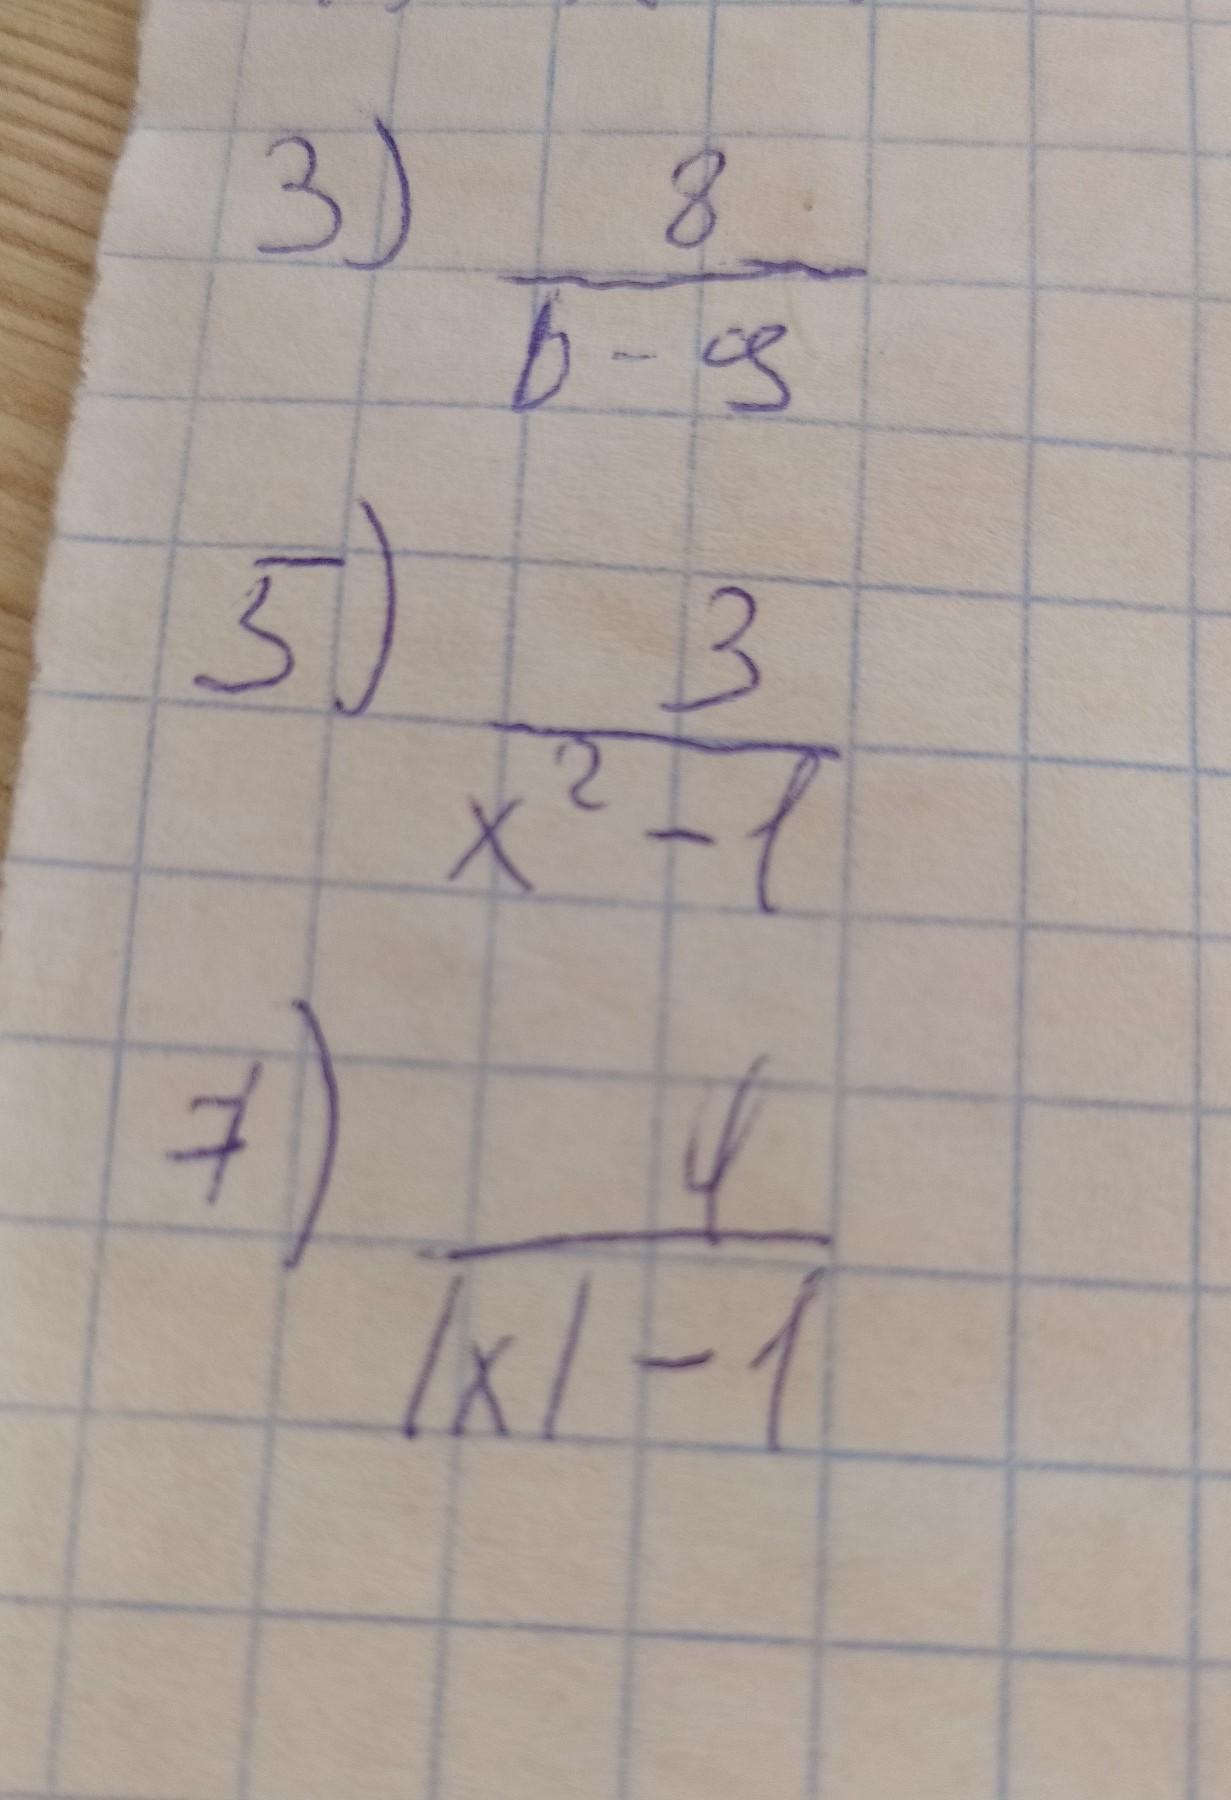 3) 8
b - 9
5) 3
x² - 1
7) 4
|x| - 1